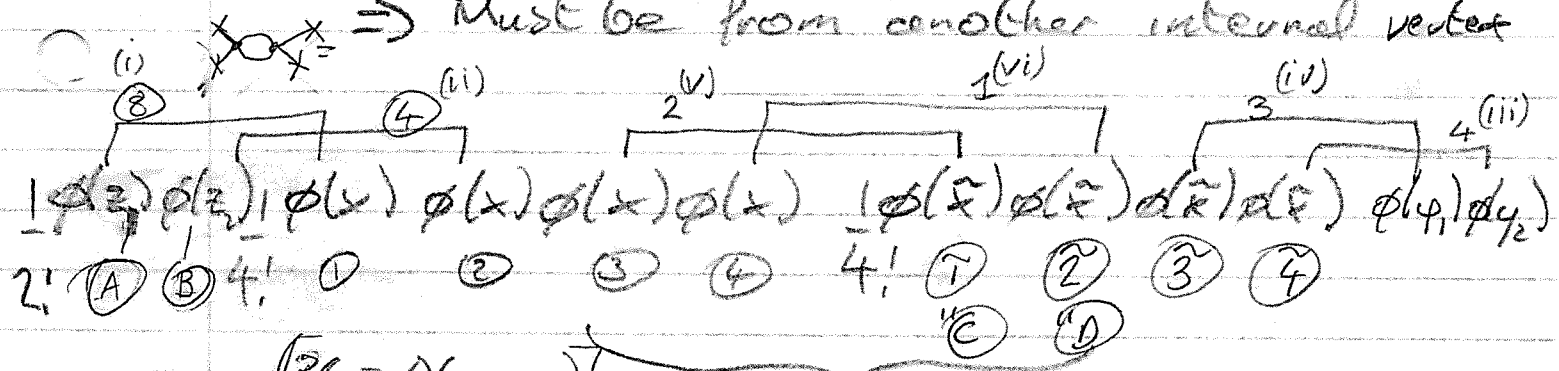 => Must be from another internal vertex
(i) (ii) (v) (vi) (iv) (iii)
8 4 2 1 3 4
1 φ(z₁) φ(z₂) 1 φ(x) φ(x) φ(x) φ(x) 1 φ(x̃) φ(x̃) φ(x̃) φ(x̃) φ(y₁) φ(y₂)
2! A B 4! 1 2 3 4 4! 1̃ 2̃ 3̃ 4̃
"C "D